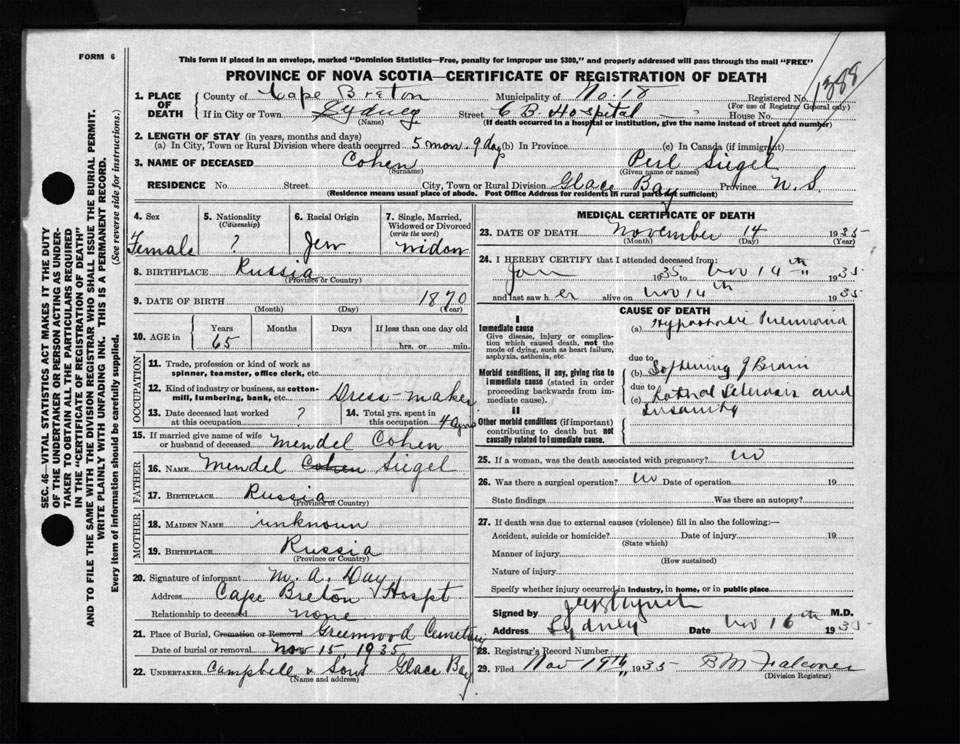 FORM 6
This form if placed in an envelope, marked "Dominion Statistics—Free, penalty for improper use $300," and properly addressed will pass through the mail "FREE"
PROVINCE OF NOVA SCOTIA—CERTIFICATE OF REGISTRATION OF DEATH
1388
1. PLACE OF DEATH County of Cape Breton Municipality of No. 18 Registered No.
(For use of Registrar General only)
If in City or Town Sydney Street C B. Hospital House No.
(Name) (If death occurred in a hospital or institution, give the name instead of street and number)
2. LENGTH OF STAY (in years, months and days)
(a) In City, Town or Rural Division where death occurred 5 mon. 9 days (b) In Province (c) In Canada (if immigrant)
3. NAME OF DECEASED Cohen Perl Siegel
(Surname) (Given name or names)
RESIDENCE No. Street City, Town or Rural Division Glace Bay Province N. S.
(Residence means usual place of abode. Post Office Address for residents in rural parts not sufficient)
4. Sex 5. Nationality (Citizenship) 6. Racial Origin 7. Single, Married, Widowed or Divorced (write the word)
Female ? Jew widow
8. BIRTHPLACE Russia
(Province or Country)
9. DATE OF BIRTH 1870
(Month) (Day) (Year)
10. AGE in Years Months Days If less than one day old
65 hrs. or min.
OCCUPATION
11. Trade, profession or kind of work as spinner, teamster, office clerk, etc.
12. Kind of industry or business, as cotton-mill, lumbering, bank, etc. Dress-maker
13. Date deceased last worked at this occupation ? 14. Total yrs. spent in this occupation 4 yrs
15. If married give name of wife or husband of deceased Mendel Cohen
FATHER
16. NAME Mendel Cohen Siegel
17. BIRTHPLACE Russia
(Province or Country)
MOTHER
18. MAIDEN NAME unknown
19. BIRTHPLACE Russia
(Province or Country)
20. Signature of informant M. A. Day
Address Cape Breton Hospt
Relationship to deceased none
21. Place of Burial, Cremation or Removal Greenwood Cemetery
Date of burial or removal Nov 15, 1935
22. UNDERTAKER Campbell & Sons Glace Bay
(Name and address)
MEDICAL CERTIFICATE OF DEATH
23. DATE OF DEATH November 14 1935
(Month) (Day) (Year)
24. I HEREBY CERTIFY that I attended deceased from:
Jan 1935 to Nov 14th 1935
and last saw her alive on Nov 14th 1935
CAUSE OF DEATH
I
Immediate cause
Give disease, injury or complication which caused death, not the mode of dying, such as heart failure, asphyxia, asthenia, etc.
(a) Hypostatic Pneumonia
due to
Morbid conditions, if any, giving rise to immediate cause (stated in order proceeding backwards from immediate cause).
(b) Softening of Brain
due to
(c) Sclerosis and Insanity
II
Other morbid conditions (if important) contributing to death but not causally related to immediate cause.
25. If a woman, was the death associated with pregnancy? No
26. Was there a surgical operation? No Date of operation 19
State findings Was there an autopsy?
27. If death was due to external causes (violence) fill in also the following:—
Accident, suicide or homicide? Date of injury 19
(State which)
Manner of injury
(How sustained)
Nature of injury
Specify whether injury occurred in industry, in home, or in public place
Signed by M.D.
Address Sydney Date Nov 16th 1935
28. Registrar's Record Number
29. Filed Nov 19th 1935 B M Falconer
(Division Registrar)
SEC. 46—VITAL STATISTICS ACT MAKES IT THE DUTY
OF THE UNDERTAKER OR PERSON ACTING AS UNDER-
TAKER TO OBTAIN ALL THE PARTICULARS REQUIRED
IN THE "CERTIFICATE OF REGISTRATION OF DEATH"
AND TO FILE THE SAME WITH THE DIVISION REGISTRAR WHO SHALL ISSUE THE BURIAL PERMIT.
WRITE PLAINLY WITH UNFADING INK. THIS IS A PERMANENT RECORD.
Every item of information should be carefully supplied. (See reverse side for instructions.)